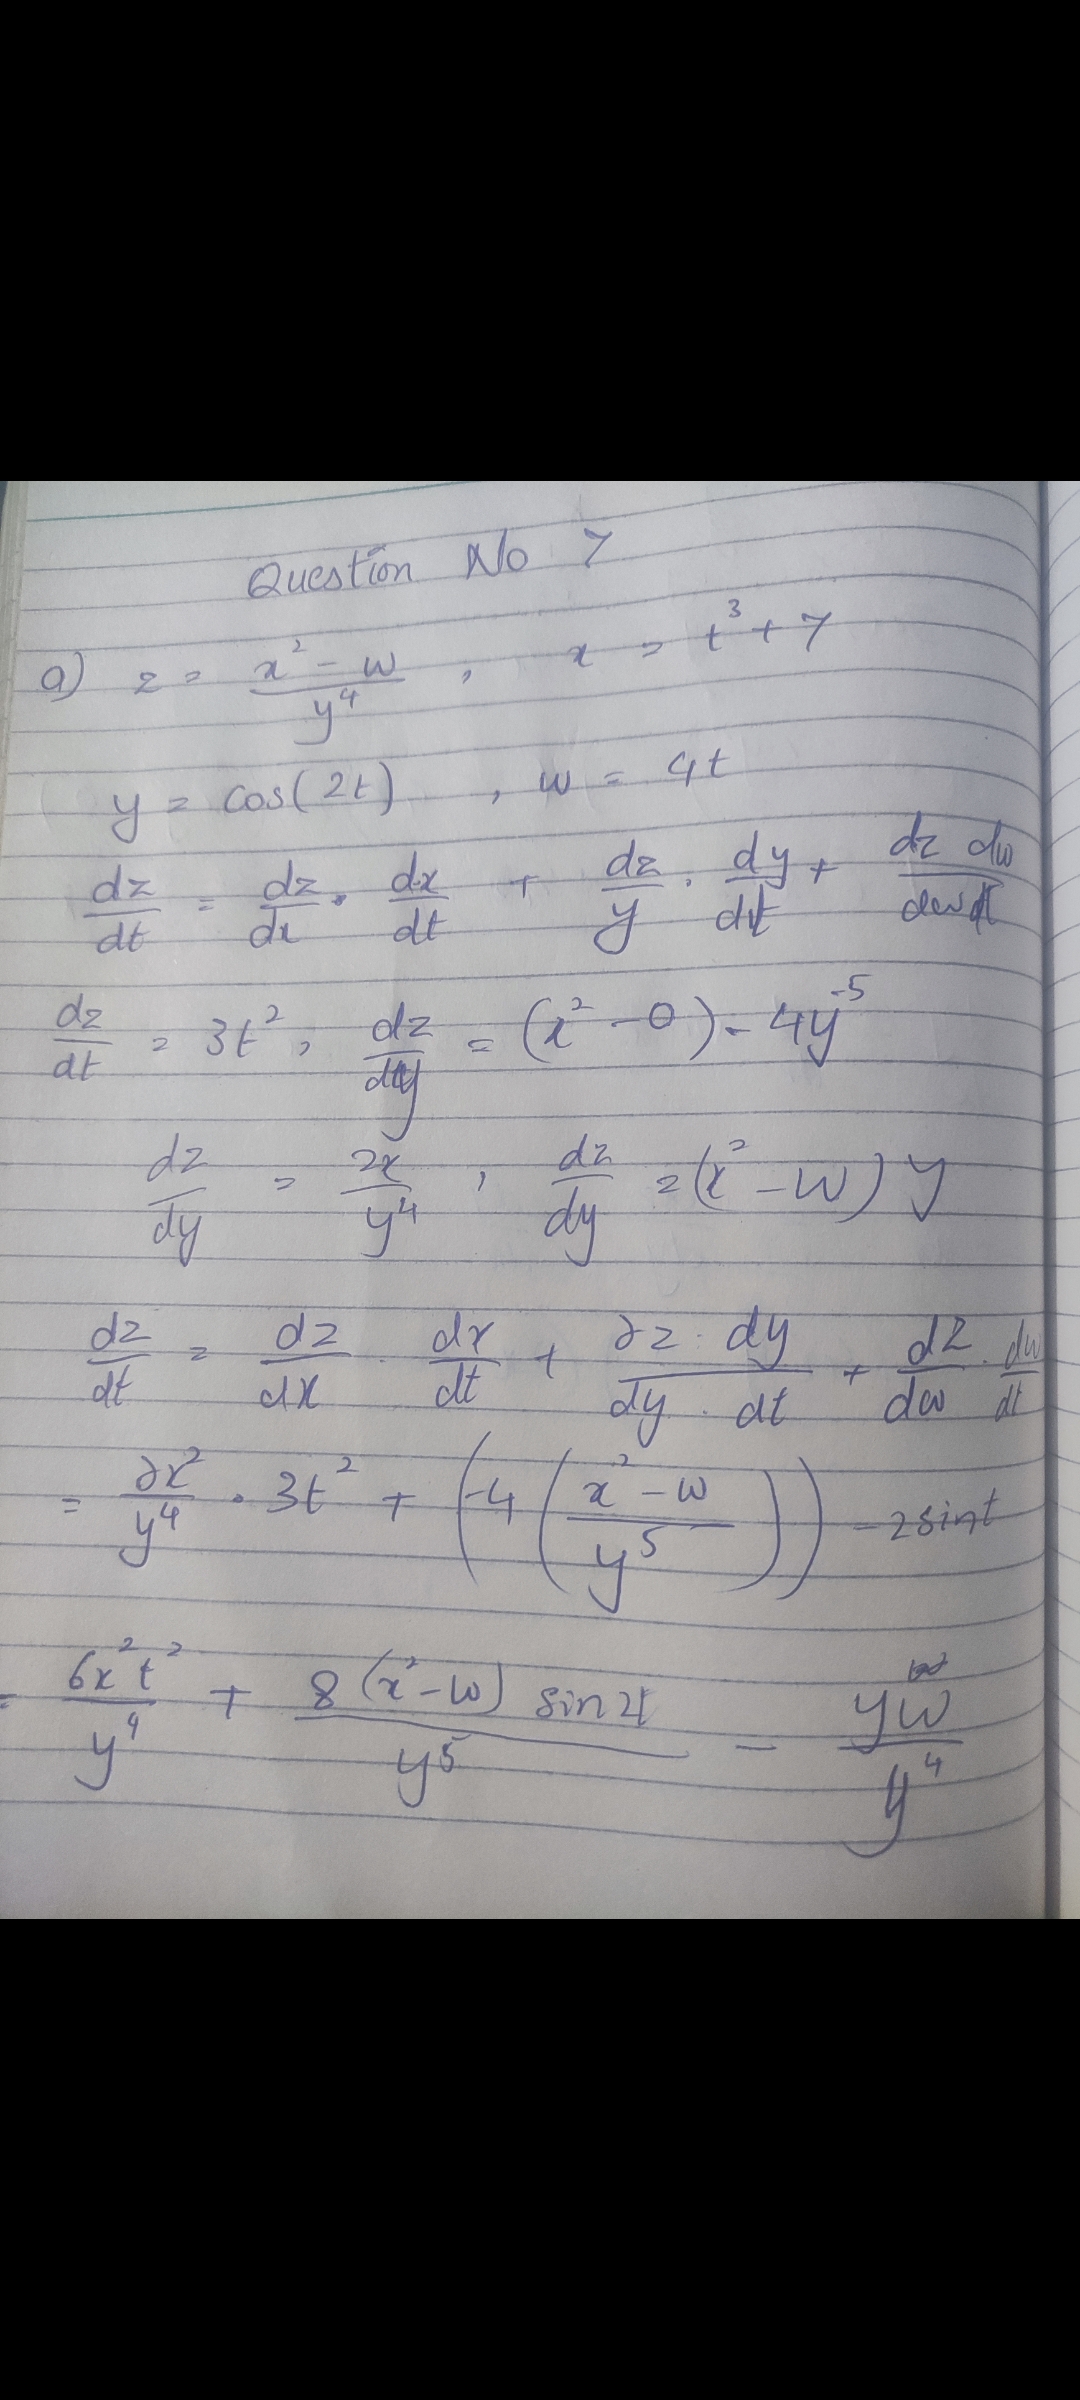 Question No 7
a) z = x² - w / y⁴ , x = t³ + 7
y = cos(2t) , w = 4t
dz/dt = dz/dx · dx/dt + dz/y · dy/dt + dz dw/dw dt
dz/dt = 3t² , dz/dy = (x² - 0) - 4y⁻⁵
dz/dy = 2x/y⁴ , dz/dy = (x² - w) y
dz/dt = dz/dx · dx/dt + ∂z · dy/dy · dt + dz/dw · dw/dt
= 2x²/y⁴ · 3t² + (-4 (x² - w / y⁵)) - 2sint
= 6x²t²/y⁴ + 8(x² - w) sin2t / y⁵ - yw/y⁴